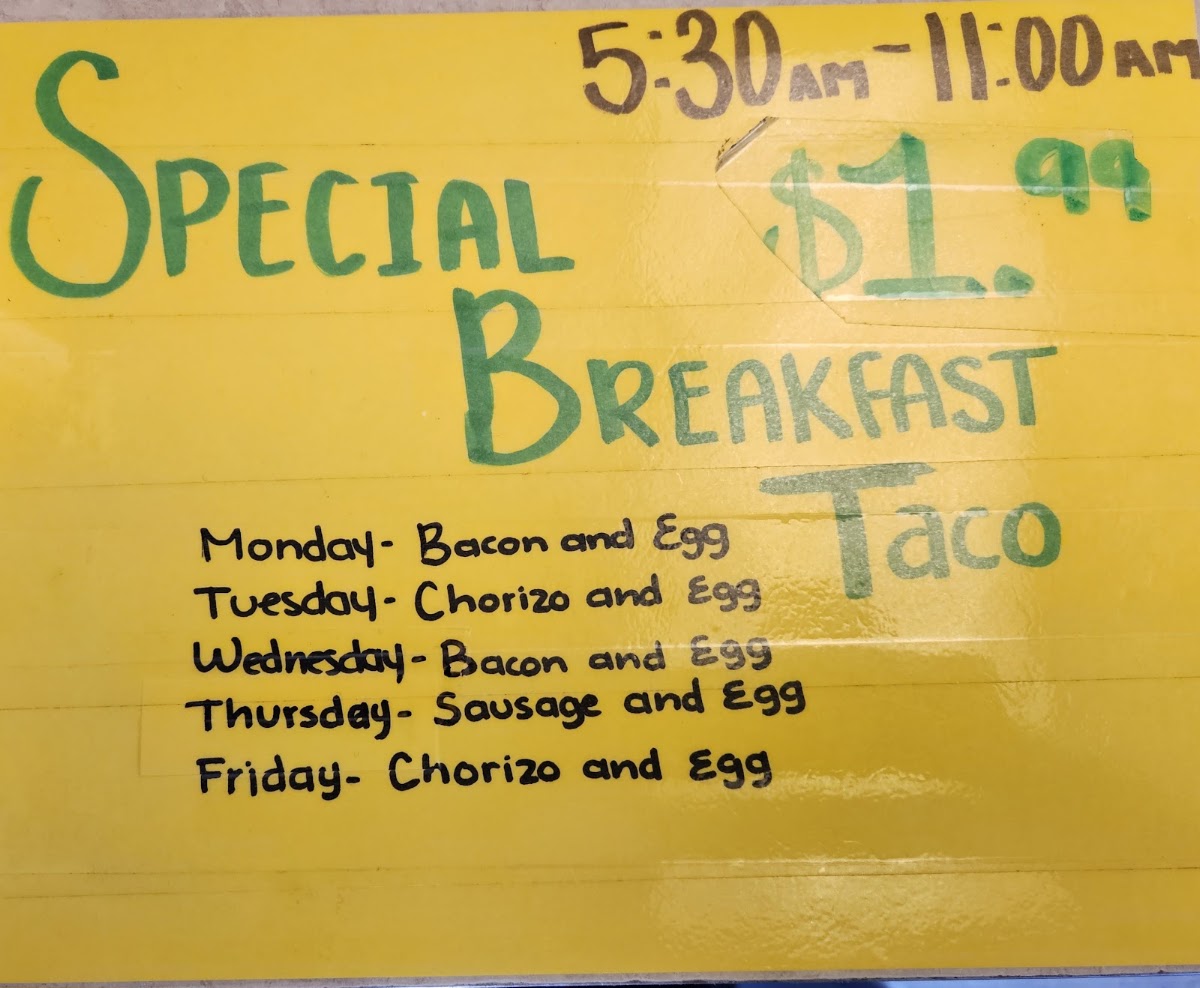 5:30AM-11:00AM
SPECIAL $1.99
BREAKFAST
Taco
Monday- Bacon and Egg
Tuesday- Chorizo and Egg
Wednesday- Bacon and Egg
Thursday- Sausage and Egg
Friday- Chorizo and Egg